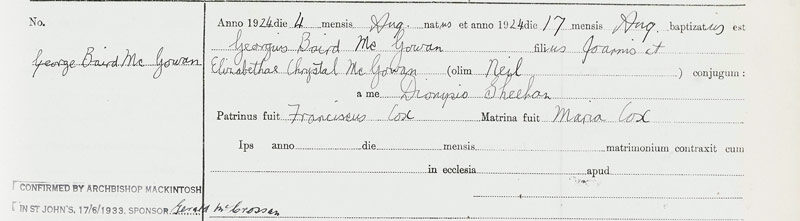 No.
George Baird Mc Gowan
Anno 1924 die 4 mensis Aug. natus et anno 1924 die 17 mensis Aug. baptizatus est
Georgius Baird Mc Gowan filius Joannis et
Elizabethae Chrystal Mc Gowan (olim Neil ) conjugum :
a me Dionysio Sheehan
Patrinus fuit Franciscus Cox Matrina fuit Maria Cox
Ips anno die mensis matrimonium contraxit cum
in ecclesia apud
CONFIRMED BY ARCHBISHOP MACKINTOSH
IN ST JOHN'S. 17/6/1933. SPONSOR. Gerald McCrossan